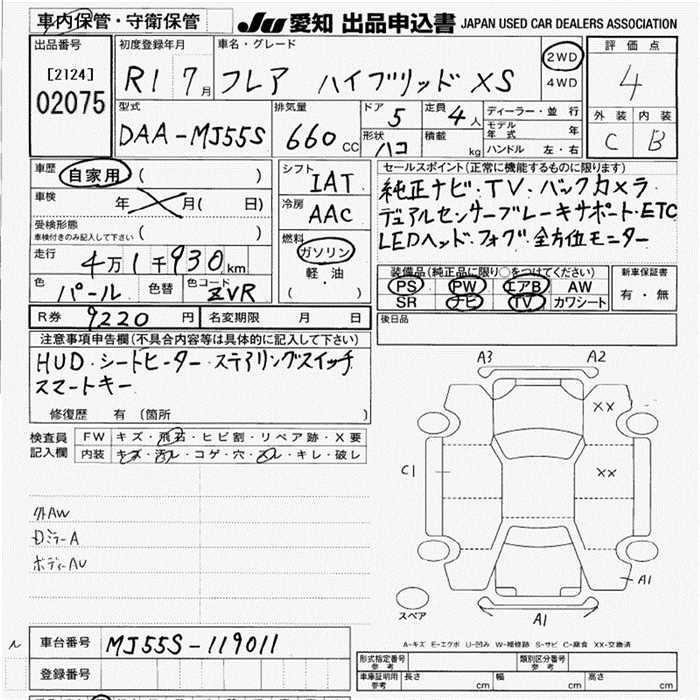 車内保管・守衛保管
JU 愛知 出品申込書 JAPAN USED CAR DEALERS ASSOCIATION
出品番号
[2124]
02075
初度登録年月
R1 7月
車名・グレード
フレア ハイブリッド XS
2WD
4WD
評価点
4
外装 内装
C B
型式
DAA-MJ55S
排気量
660 CC
ドア 5
形状 ハコ
定員 4人
積載 kg
ディーラー・並行
モデル年式 年
ハンドル 左・右
車歴 自家用 ( )
車検 年 月( 日)
受検形態
車検付きのみ記入して下さい ( )
走行 4万1千930km
色 パール 色替 色コード ZVR
シフト IAT
冷房 AAC
燃料
ガソリン
軽・油
( )
セールスポイント(正常に機能するものに限ります)
純正ナビ・TV・バックカメラ
デュアルセンサーブレーキサポート・ETC
LEDヘッド・フォグ・全方位モニター
装備品(純正品に限り○をつけてください)
PS PW エアB AW
SR ナビ TV カワシート
新車保証書
有・無
R券 9220円 名変期限 月 日
後日品
注意事項申告欄(不具合内容等は具体的に記入して下さい)
HUD・シートヒーター・ステアリングスイッチ
スマートキー
修復歴 有 (箇所 )
検査員 FW キズ・飛石・ヒビ割・リペア跡・X要
記入欄 内装 キズ・汚レ・コゲ・穴・凸レ・キレ・破レ
外AW
DミラーA
ボディーAU
A3 A2
XX
C1
XX
A1
A1
スペア
A-キズ E-エクボ U-凹み W-補修跡 S-サビ C-腐食 XX-交換済
車台番号 MJ55S-119011
登録番号
形式指定番号 参考
類別区分番号 参考
車庫証明用 参考 長さ cm 幅 cm 高さ cm